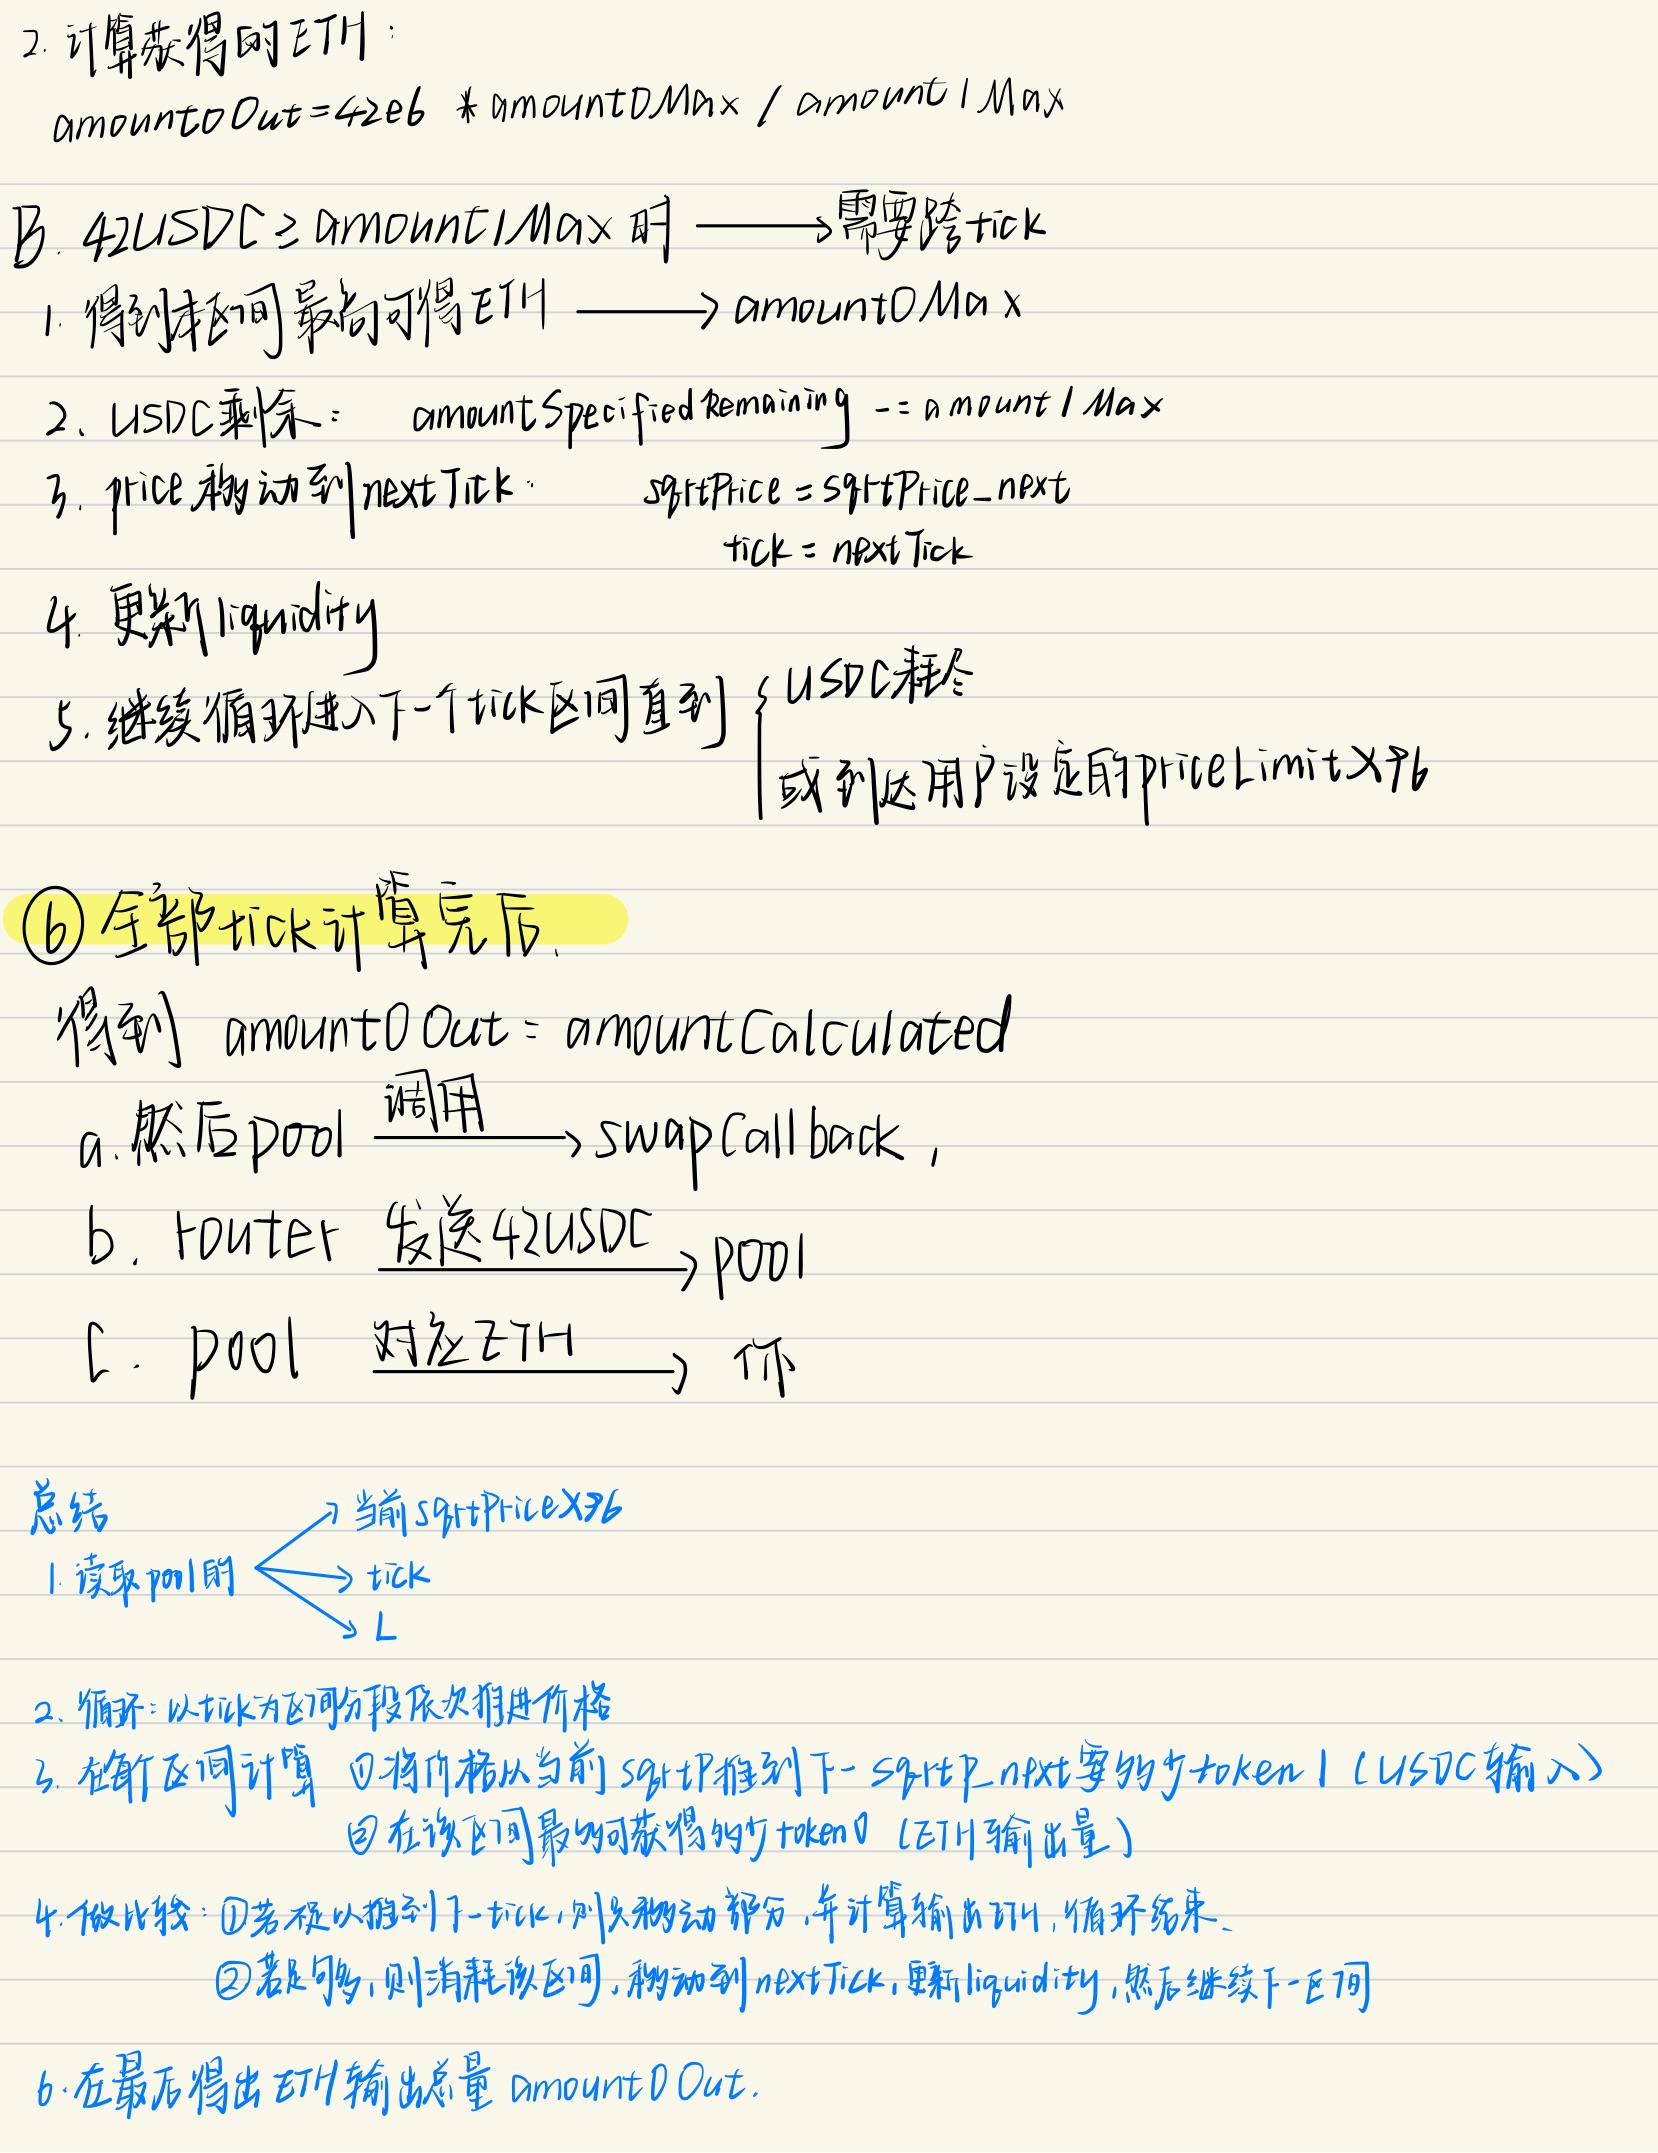 2. 计算获得的ETH:
amount0Out=42e6 * amount0Max / amount1Max
B. 42USDC≥amount1Max时 ⟶ 需要跨tick
1. 得到本区间最高可得ETH ⟶ amount0Max
2. USDC剩余: amountSpecifiedRemaining -= amount1Max
3. price移动到nextTick. sqrtPrice = sqrtPrice_next
tick = nextTick
4. 更新liquidity
5. 继续循环进入下一个tick区间直到 { USDC耗尽
或到达用户设定的priceLimitX96
⑥ 全部tick计算完后.
得到 amount0Out = amountCalculated
a. 然后pool 调用→ swapCallback,
b. router 发送42USDC→ pool
C. pool 对应ETH→ 你
总结
1. 读取pool的 → 当前sqrtPriceX96
→ tick
→ L
2. 循环:以tick为区间分段依次推进价格
3. 在每个区间计算 ①将价格从当前sqrtP推到下一sqrtP_next要多少token1(USDC输入)
②在该区间最多可获得多少token0 (ETH输出量)
4. 做比较: ①若不足以推到下一tick,则只移动部分,并计算输出ETH,循环结束.
②若足够多,则消耗该区间,移动到nextTick,更新liquidity,然后继续下一区间
6. 在最后得出ETH输出总量 amount0Out.